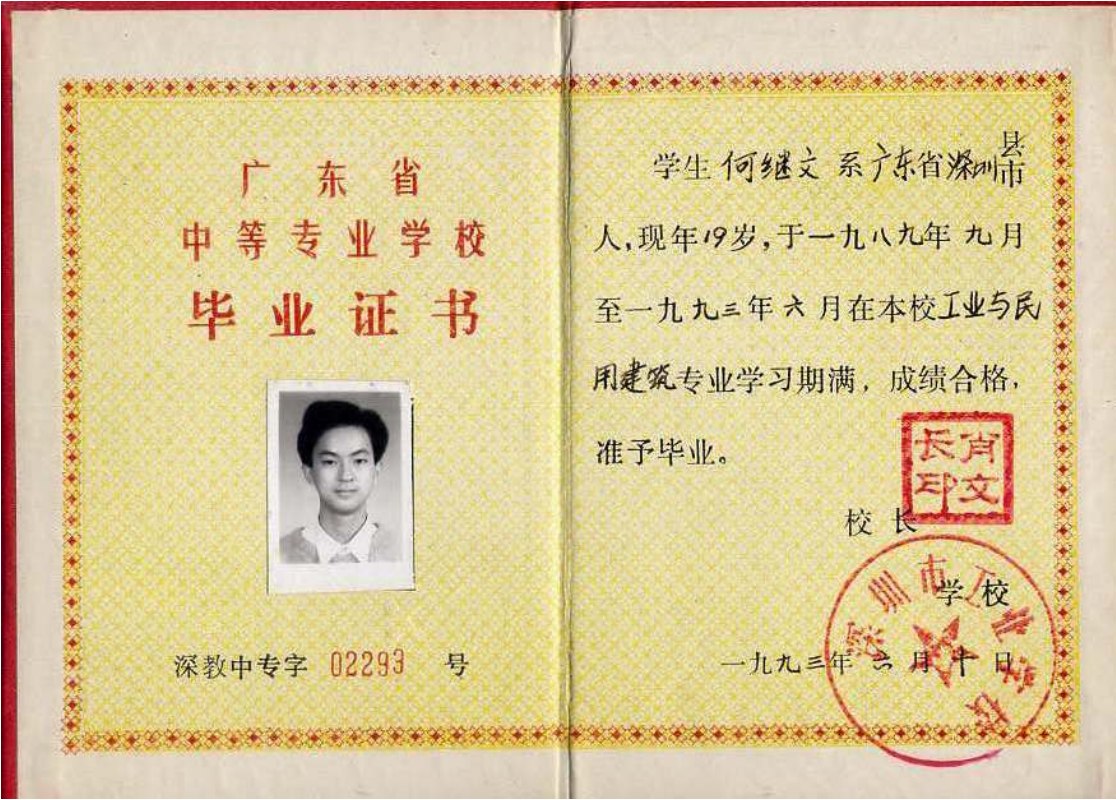 广东省
中等专业学校
毕业证书
深教中专字 02293 号
学生 何继文 系广东省深圳县市
人,现年19岁,于一九八九年 九月
至一九九三年 六 月在本校工业与民
用建筑专业学习期满,成绩合格,
准予毕业。
校 长
肖文
长印
学 校
深圳市工业学校
一九九三年 六 月 十 日